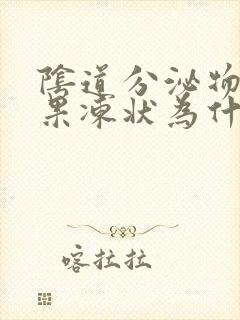 陰道分泌物
果凍狀為什
喀拉拉